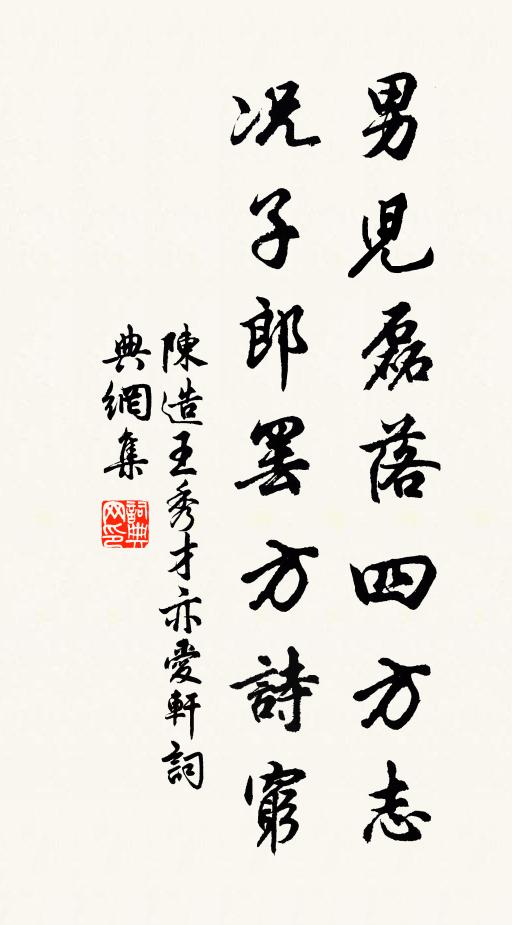 男兒磊落四方志
况子郎罷方詩窮
陳造王秀才亦愛軒詞
典網集
詞典网印